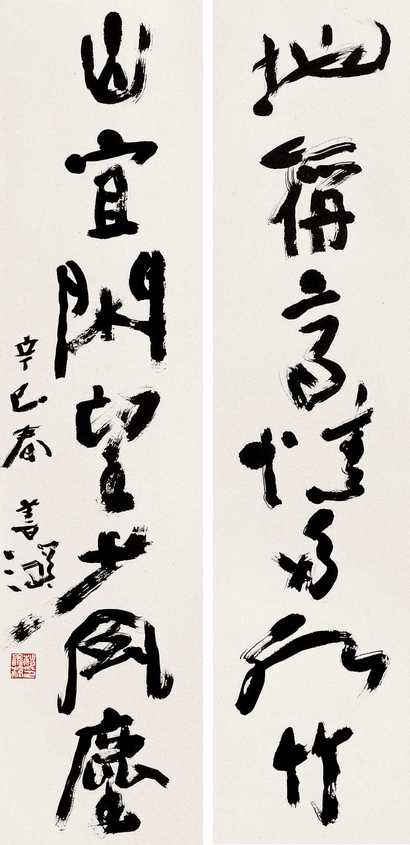 地稱高情多水竹
山宜閑望少風塵
辛巳春